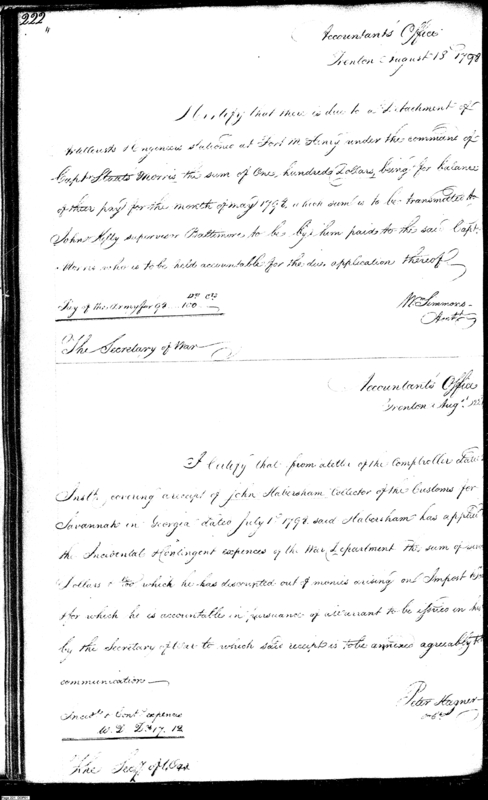 222
Accountants Office
Trenton August 13th 1798
I Certify that there is due to a Detachment of
Artillerists & Engineers stationed at Fort McHenry under the command of
Captn Staats Morris the sum of One hundred Dollars, being for balance
of their pay for the month of may 1798 which sum is to be transmitted to
John Kilty supervisor Baltimore to be by him paid to the said Capt.
Morris who is to be held accountable for the due application thereof
Dlls Cts
Pay of the Army for 98 100
Wm Simmons
Acctt
The Secretary of War
Accountants Office
Trenton Augt
I Certify that from a letter of the Comptroller
Inst. covering a receipt of John Habersham Collector of the Customs for
Savannah in Georgia dated July 1st 1798 said Habersham has applied
the Incidental & Contingent expences of the War Department the sum of
Dollars & which he has disbursed out of monies arising on Import
& for which he is accountable in pursuance of a Warrant to be issued in his
by the Secretary of War to which said receipt is to be annexed agreeably to
communication
Peter Hagner
Incidl & Contt expences
W. D. Ds 17. 12
The Secy of War